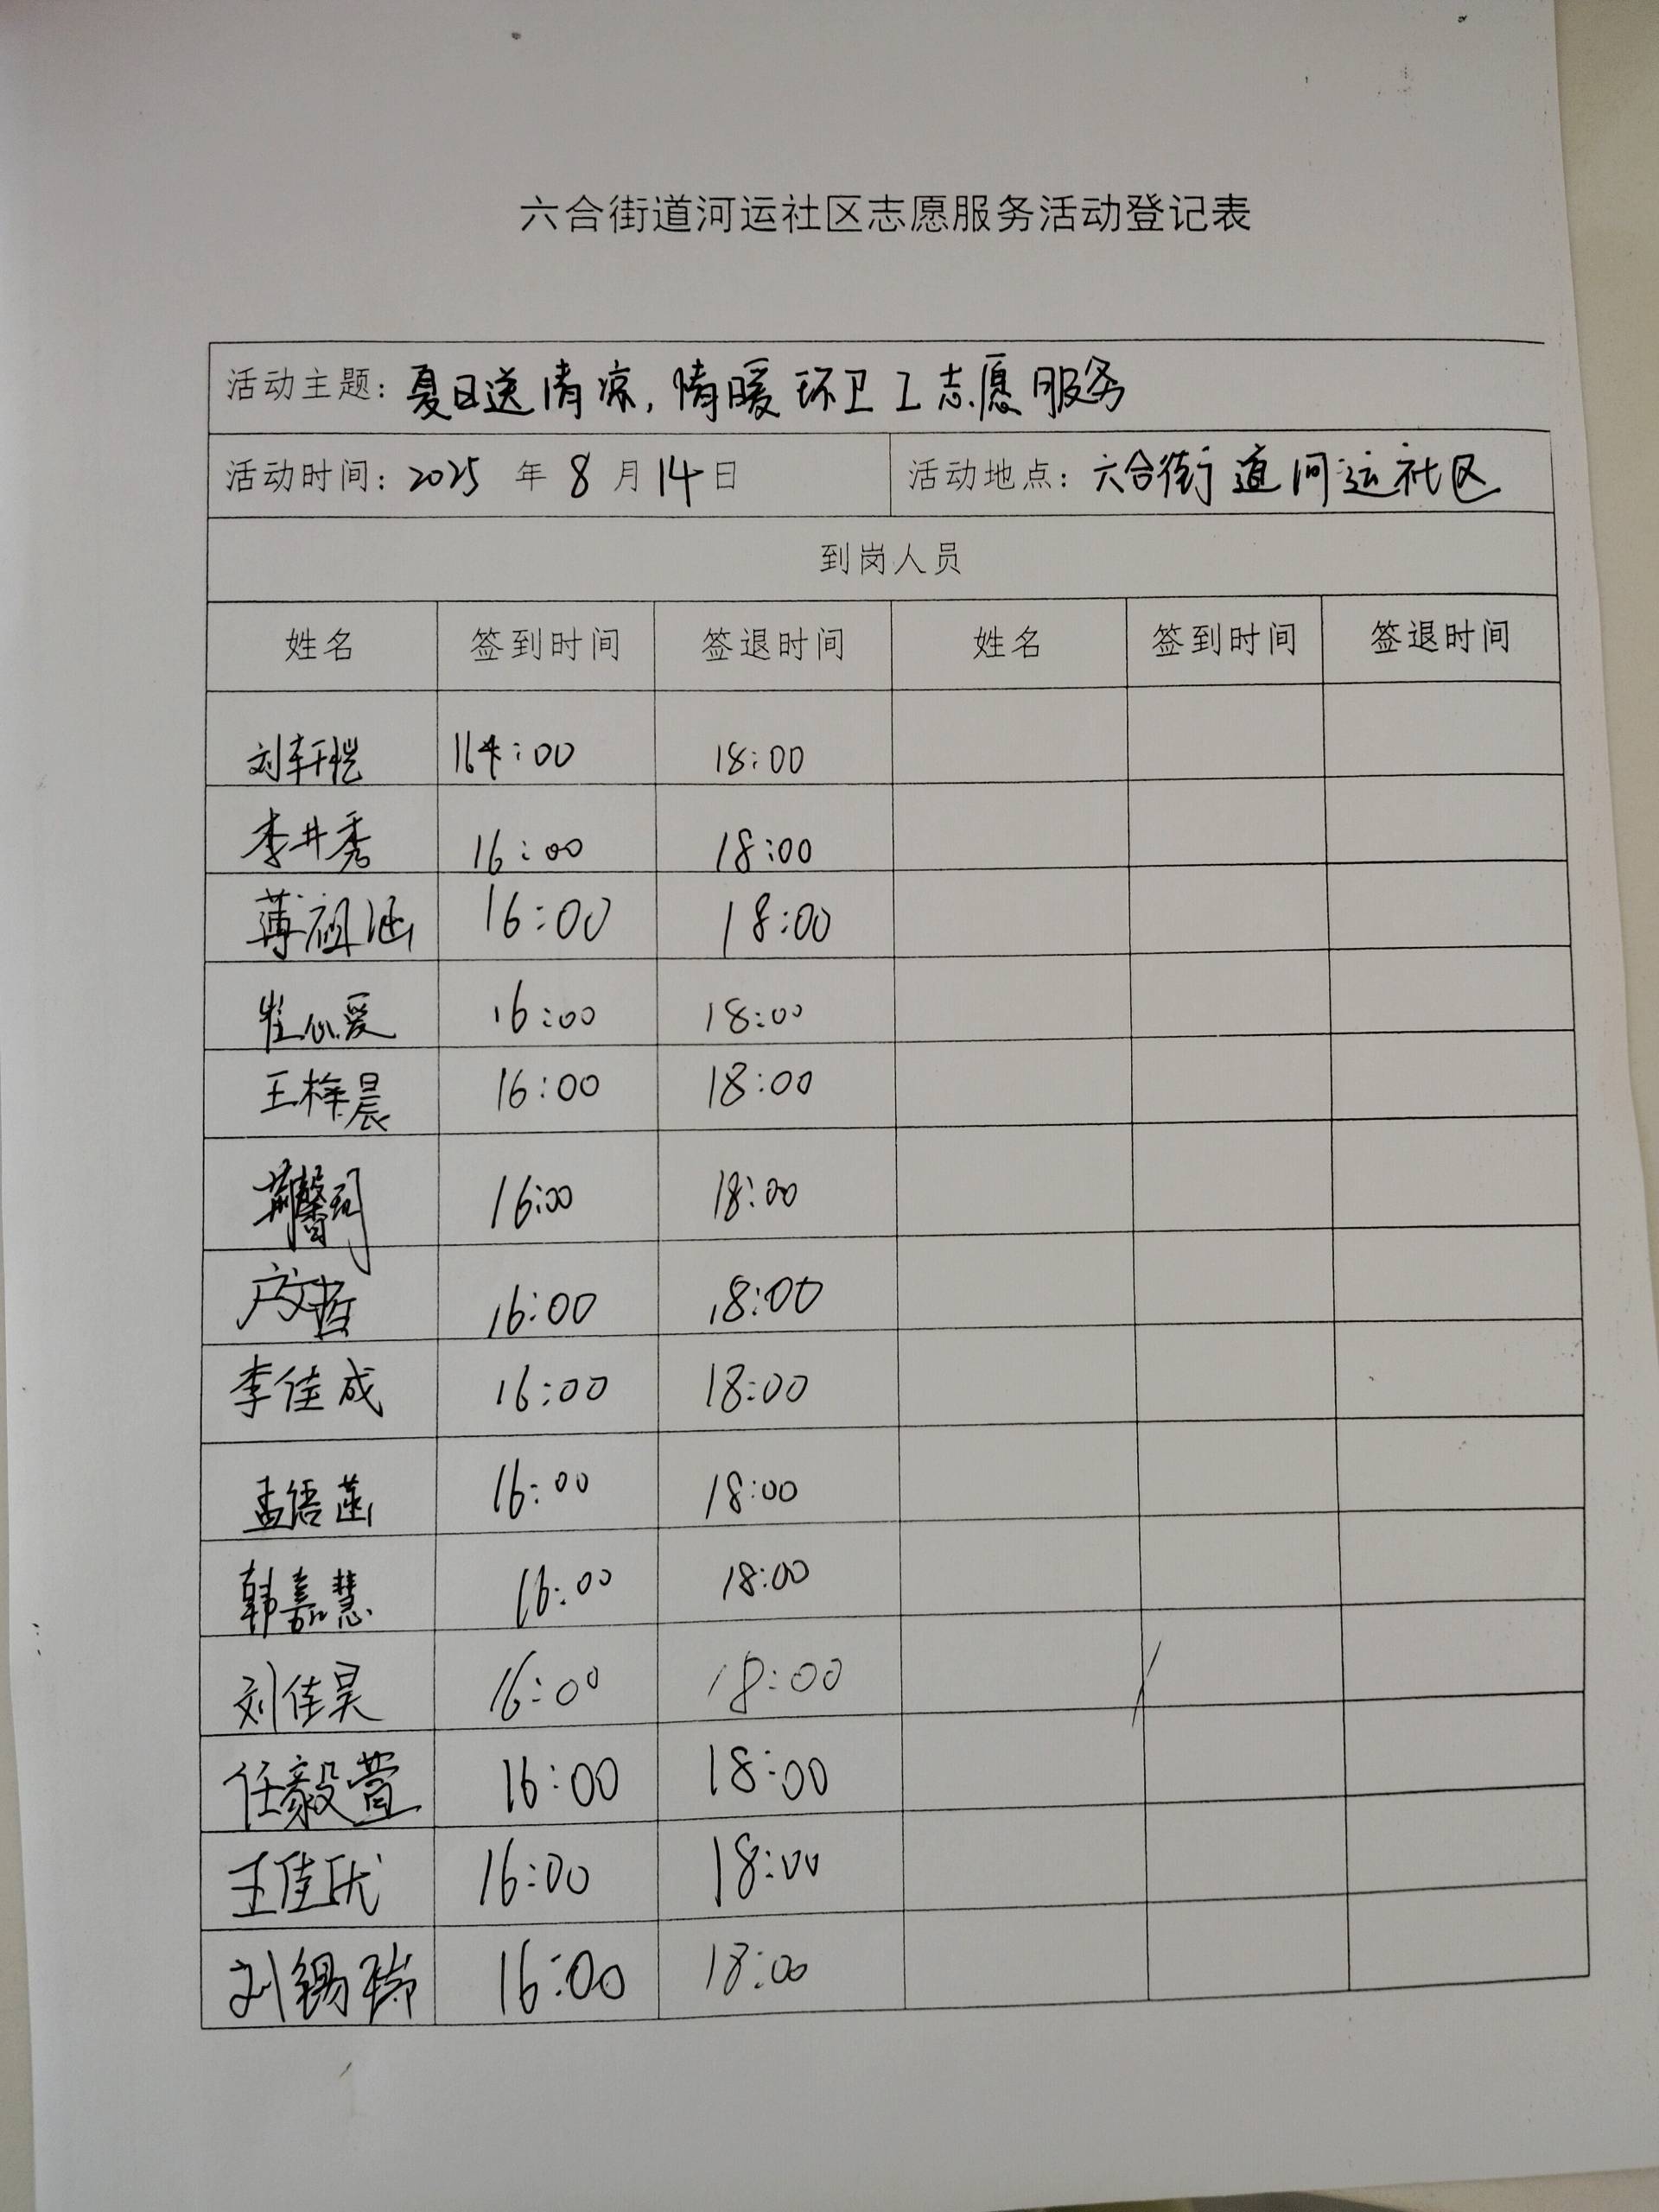 六合街道河运社区志愿服务活动登记表
活动主题：夏日送清凉，情暖环卫工志愿服务
活动时间：2025 年 8 月 14 日 活动地点：六合街道河运社区
到岗人员
姓名 签到时间 签退时间 姓名 签到时间 签退时间
刘轩恺 16:00 18:00
李井秀 16:00 18:00
薄祖涵 16:00 18:00
崔心爱 16:00 18:00
王梓晨 16:00 18:00
荆馨 16:00 18:00
文哲 16:00 18:00
李佳成 16:00 18:00
孟语菡 16:00 18:00
韩嘉慧 16:00 18:00
刘佳昊 16:00 18:00
任毅萱 16:00 18:00
王佳 16:00 18:00
刘锡瑞 16:00 18:00